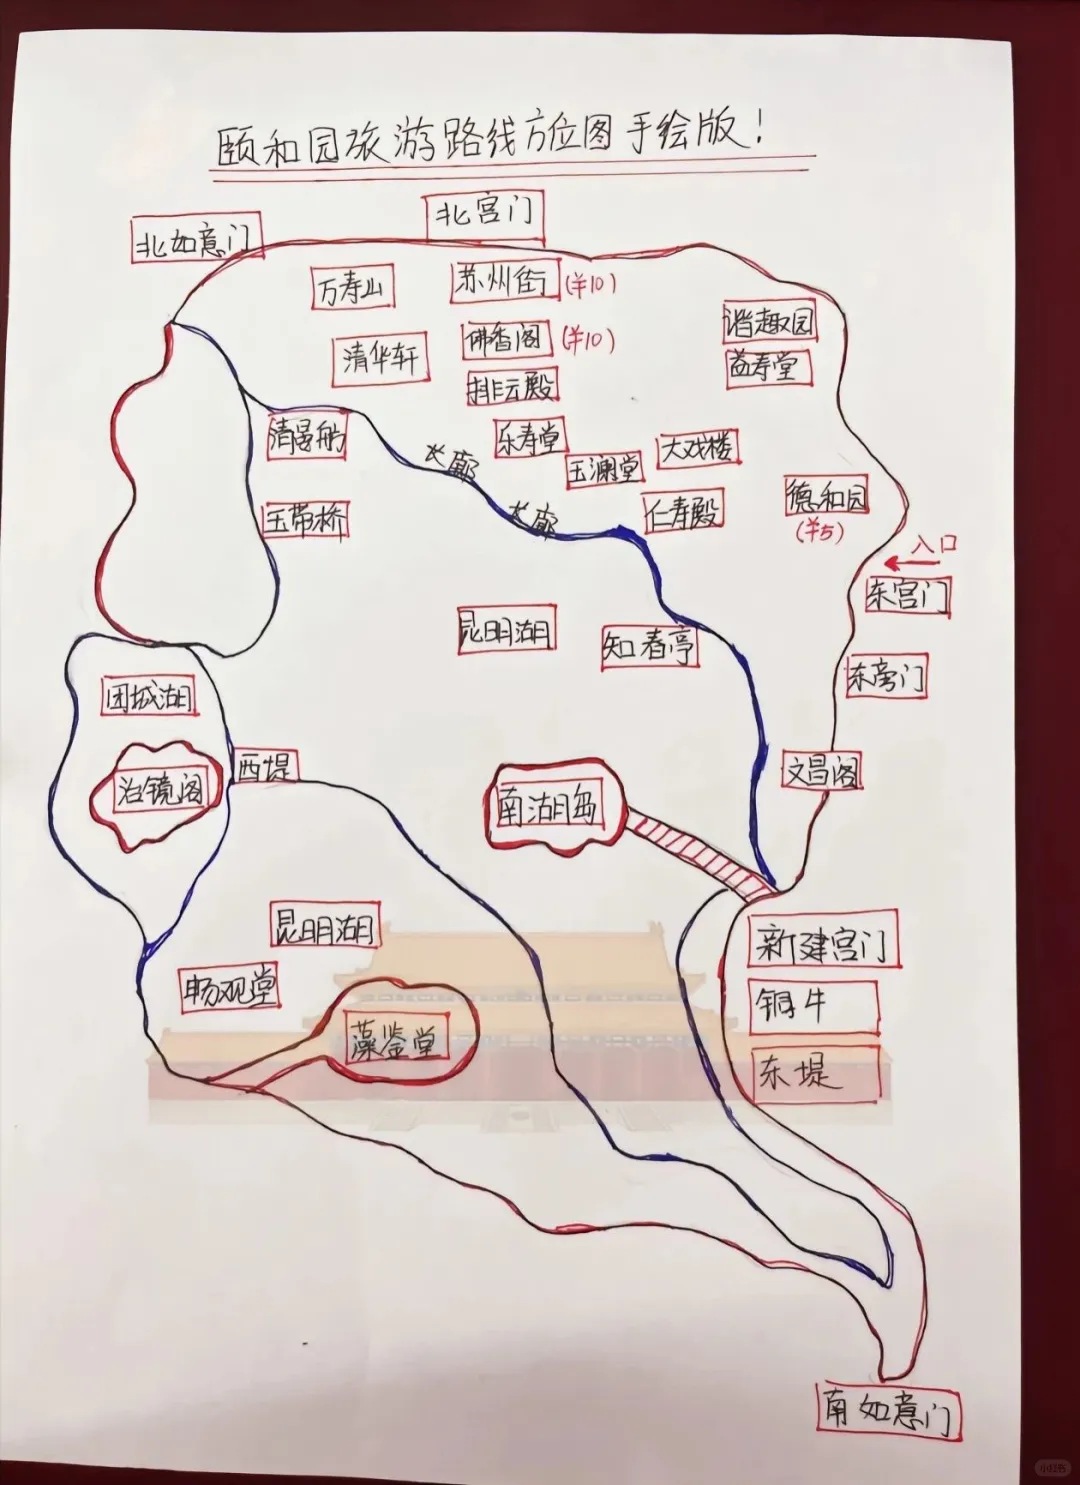 颐和园旅游路线方位图手绘版!
北宫门
北如意门
万寿山
苏州街 (¥10)
谐趣园
佛香阁 (¥10)
清华轩
益寿堂
排云殿
清晏舫
乐寿堂
长廊
大戏楼
玉澜堂
德和园
(¥5)
仁寿殿
玉带桥
长廊
入口
东宫门
昆明湖
知春亭
东旁门
团城湖
西堤
文昌阁
治镜阁
南湖岛
昆明湖
新建宫门
畅观堂
铜牛
藻鉴堂
东堤
南如意门
小红书